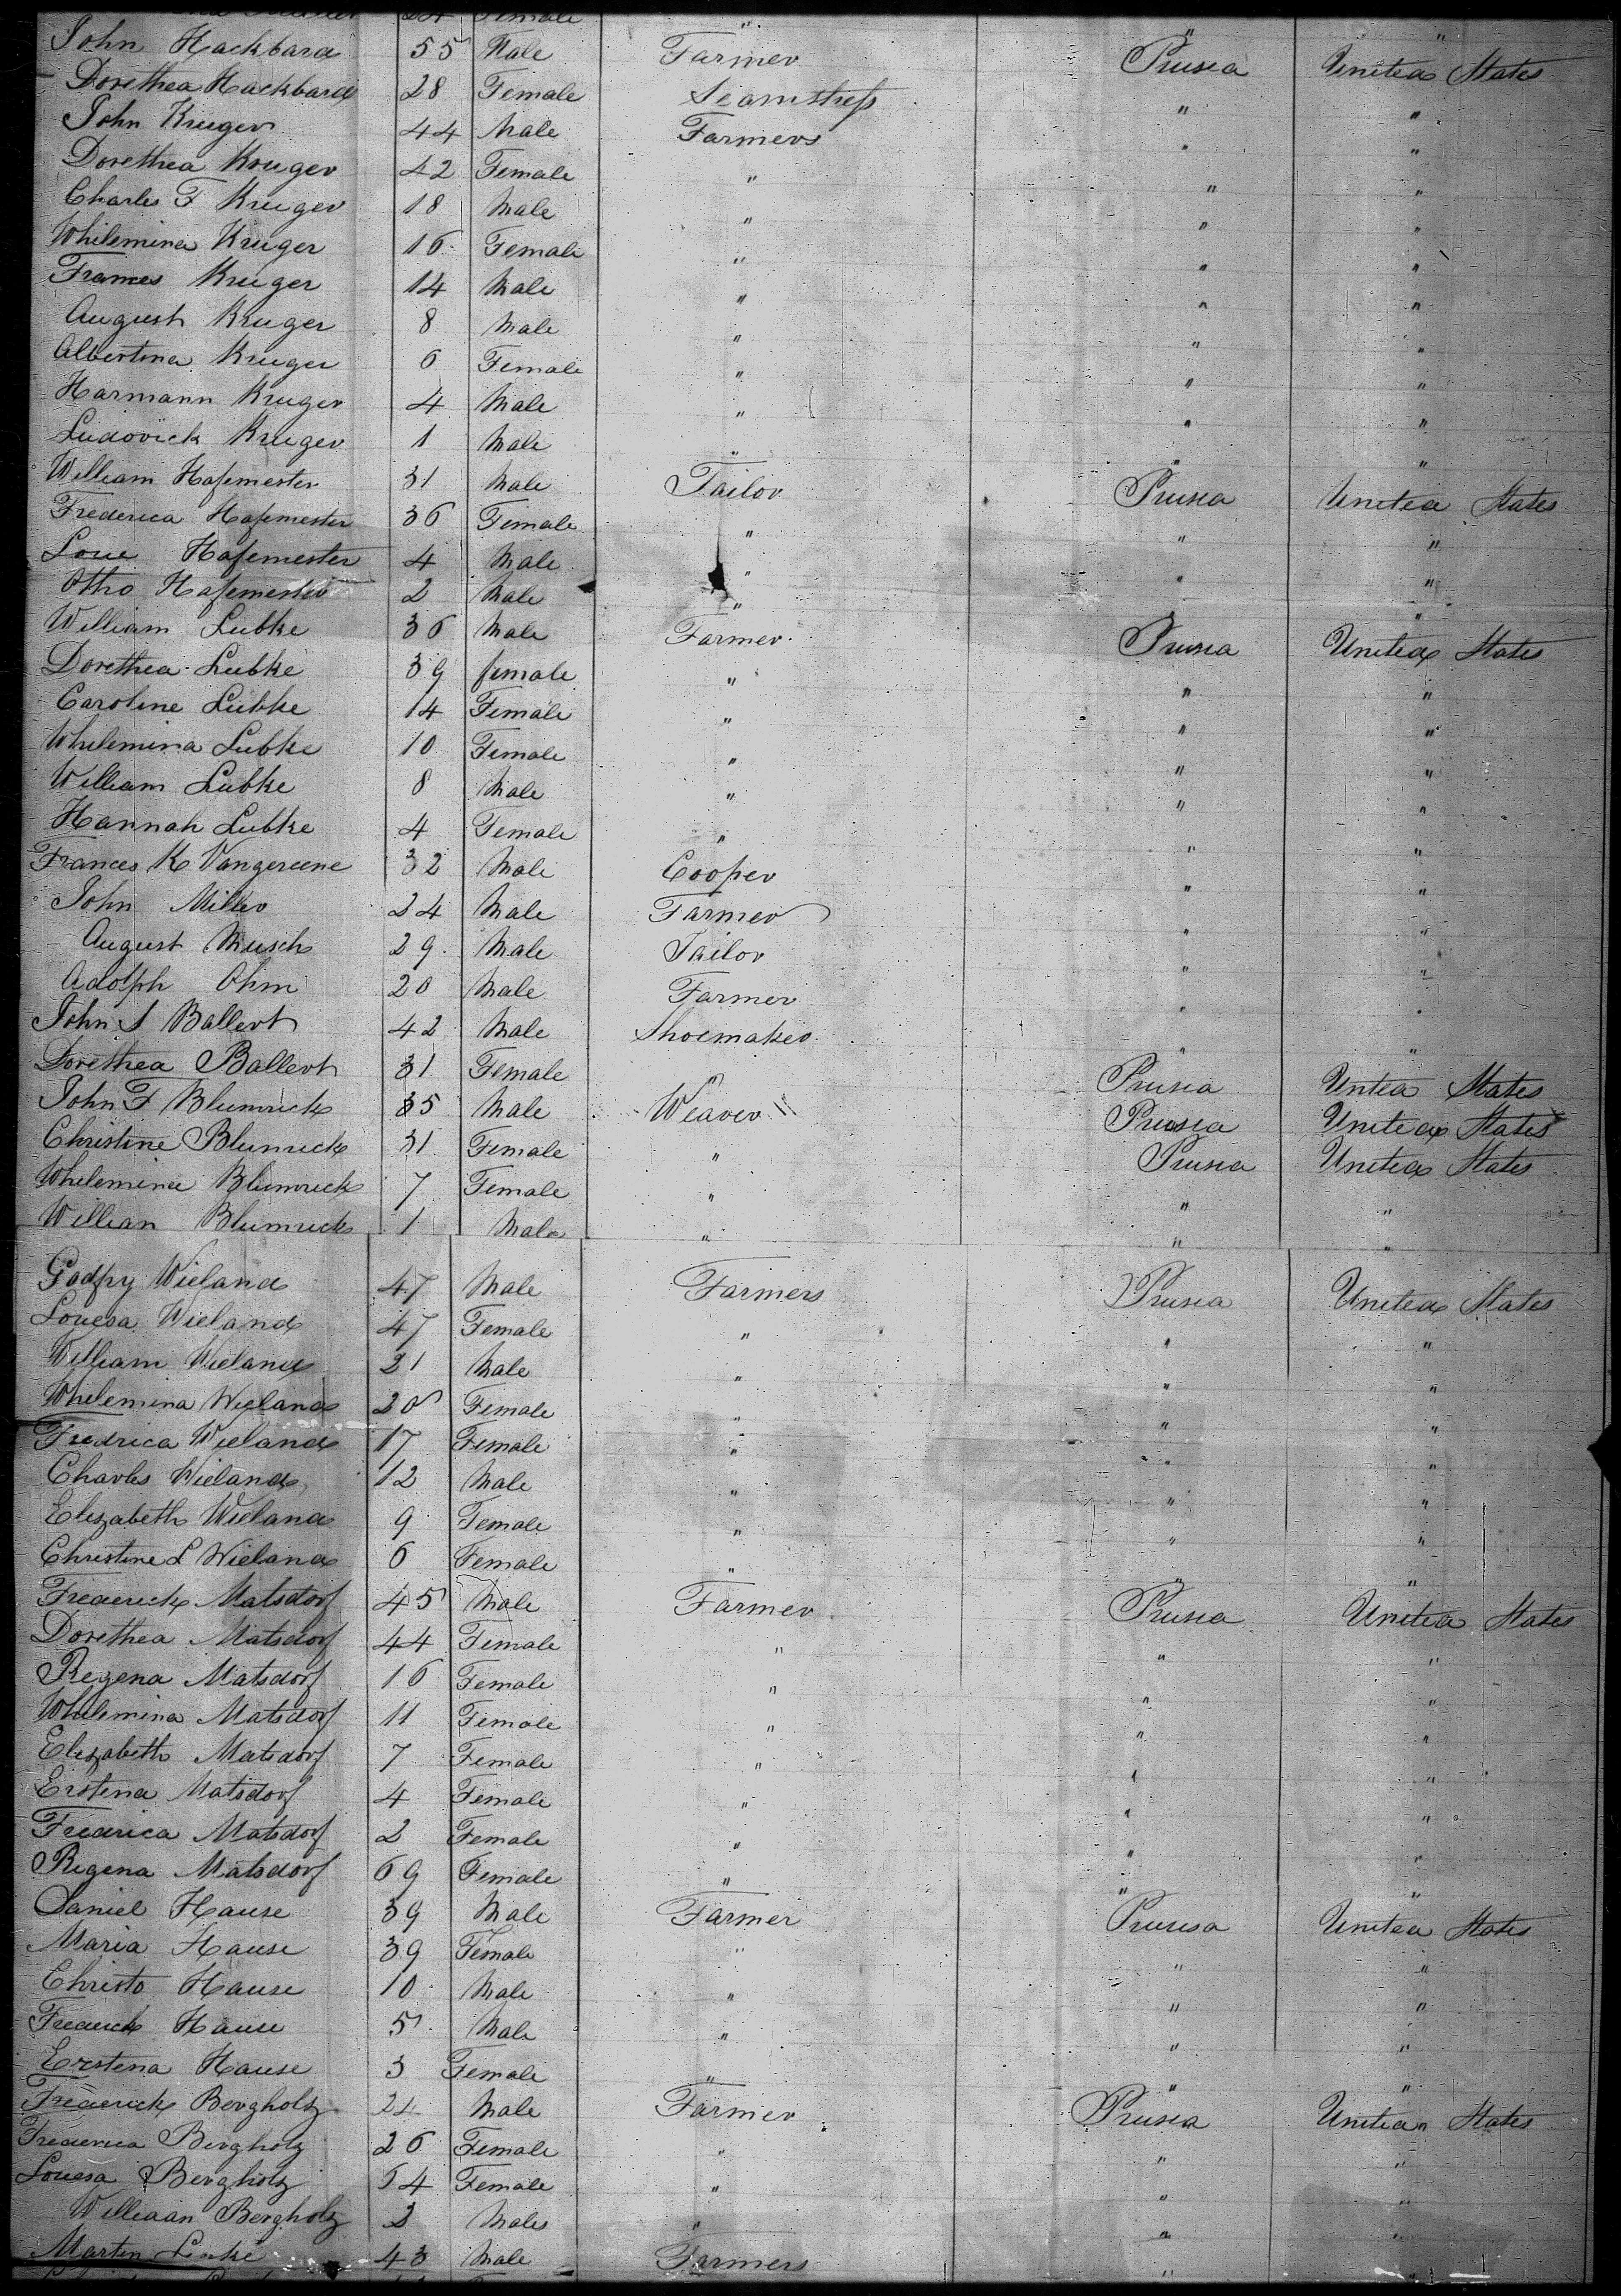 24 Female " " "
John Hackbard 55 Male Farmer Prusia United States
Dorethea Hackbard 28 Female Seamstress " "
John Kruger 44 Male Farmers " "
Dorethea Kruger 42 Female " " "
Charles F Kruger 18 Male " " "
Whilemina Kruger 16 Female " " "
Frances Kruger 14 Male " " "
August Kruger 8 Male " " "
Albertina Kruger 6 Female " " "
Harmann Kruger 4 Male " " "
Ludovick Kruger 1 Male " " "
William Hafemester 31 Male Tailor Prusia United States
Frederica Hafemester 36 Female " " "
Loue Hafemester 4 Male " " "
Otho Hafemester 2 Male " " "
William Lubke 36 Male Farmer Prusia United States
Dorethea Lubke 39 female " " "
Caroline Lubke 14 Female " " "
Whilemina Lubke 10 Female " " "
William Lubke 8 Male " " "
Hannah Lubke 4 Female " " "
Frances K Vangereene 32 Male Cooper " "
John Miller 24 Male Farmer " "
August Musch 29 Male Tailor " "
Adolph Ohm 20 Male Farmer " "
John S Ballert 42 Male Shoemaker " "
Dorethea Ballert 31 Female " Prusia Untea States
John F Blumrick 35 Male Weaver Prusia United States
Christine Blumrick 31 Female " Prusia United States
Whilemina Blumrick 7 Female " " "
Willian Blumrick 1 Male " " "
Godfry Wieland 47 Male Farmers Prusia United States
Louesa Wieland 47 Female " " "
William Wieland 21 Male " " "
Whilemina Wieland 20 Female " " "
Fredrica Wieland 17 Female " " "
Charles Wieland 12 Male " " "
Elizabeth Wieland 9 Female " " "
Christine L Wieland 6 Female " " "
Frederick Matsdorf 45 Male Farmer Prusia United States
Dorethea Matsdorf 44 Female " " "
Regena Matsdorf 16 Female " " "
Whilemina Matsdorf 11 Female " " "
Elizabeth Matsdorf 7 Female " " "
Erstena Matsdorf 4 Female " " "
Fredrica Matsdorf 2 Female " " "
Regena Matsdorf 69 Female " " "
Daniel Hause 39 Male Farmer Prusia United States
Maria Hause 39 Female " " "
Christo Hause 10 Male " " "
Frederick Hause 5 Male " " "
Erstena Hause 3 Female " " "
Frederick Bergholz 24 Male Farmer Prusia United States
Frederica Bergholz 26 Female " " "
Louesa Bergholz 64 Female " " "
Williaan Bergholz 2 Males " " "
Marten Linke 43 Male Farmers " "